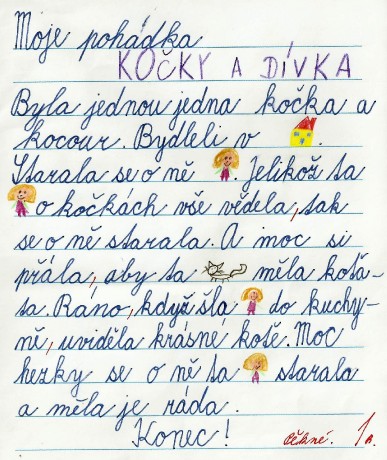 Moje pohádka
KOČKY A DÍVKA
Byla jednou jedna kočka a
kocour. Bydleli v .
Starala se o ně . Jelikož ta
o kočkách vše věděla, tak
se o ně starala. A moc si
přála, aby ta měla koťa-
ta. Ráno, když šla do kuchy-
ně, uviděla krásné kotě. Moc
hezky se o ně ta starala
a měla je ráda.
Konec! Pěkné. 1A.